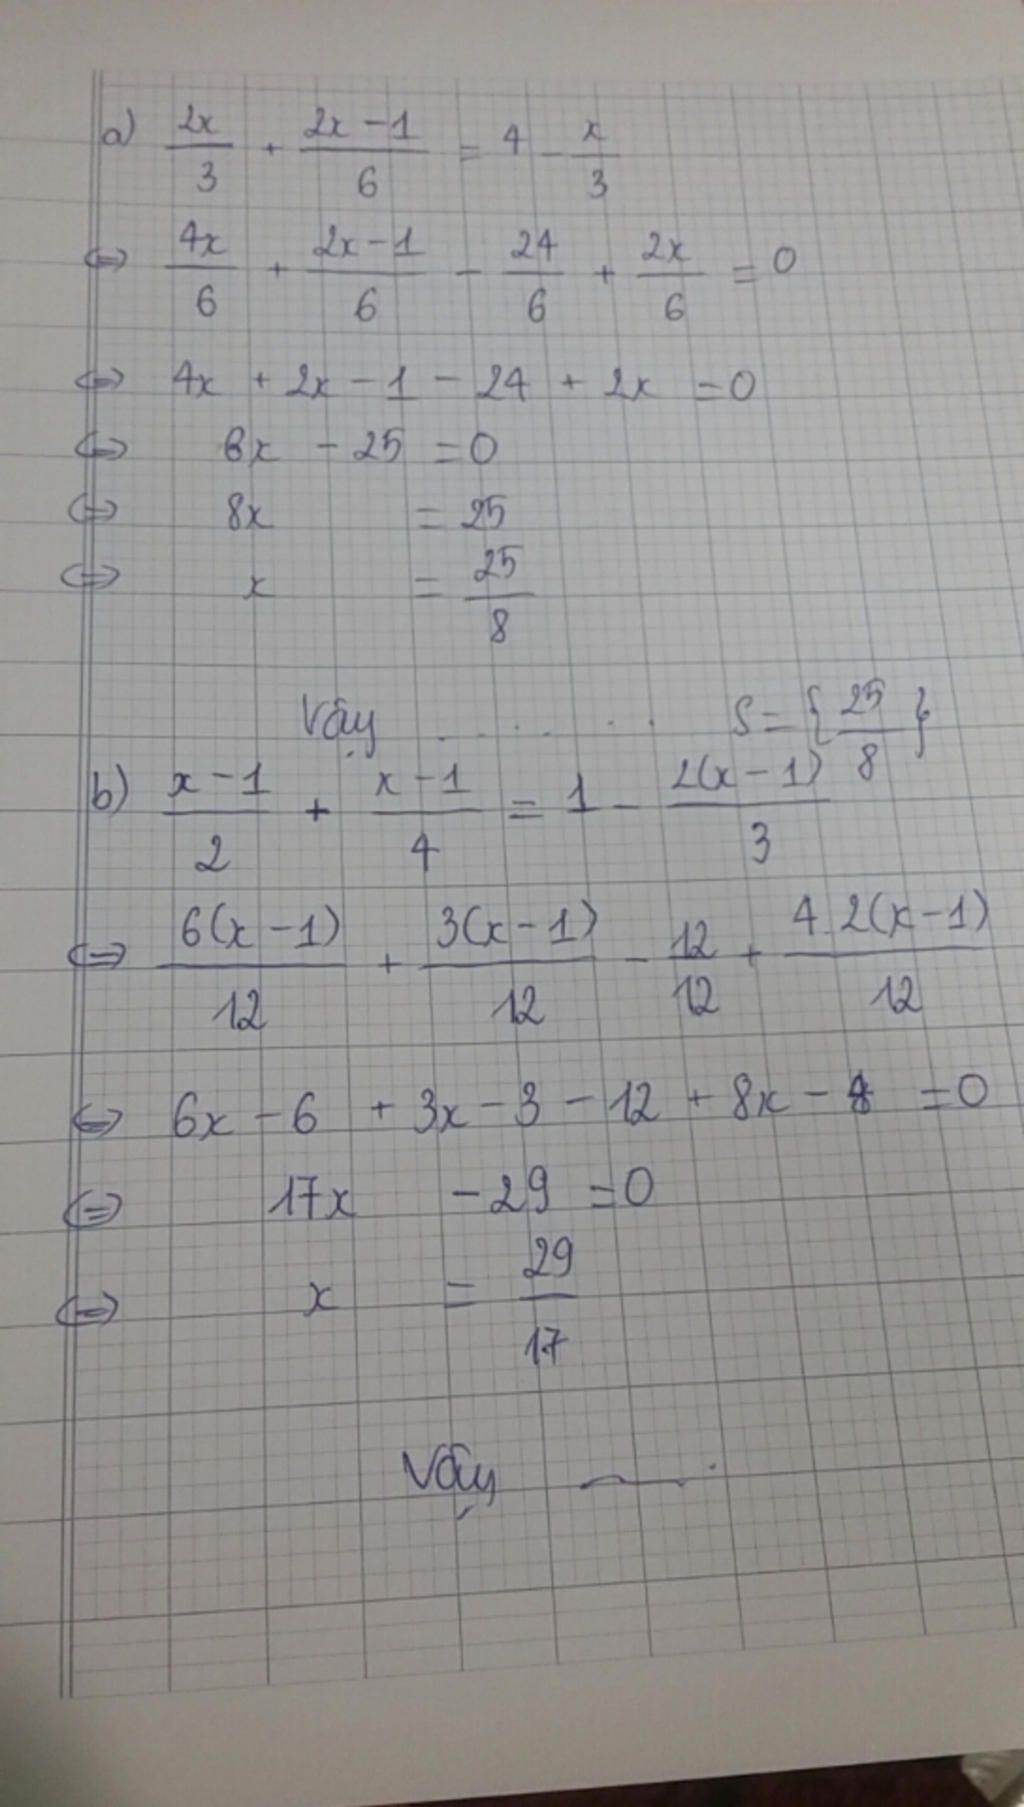 a) 2x/3 + (2x-1)/6 = 4 - x/3
⇔ 4x/6 + (2x-1)/6 - 24/6 + 2x/6 = 0
⇔ 4x + 2x - 1 - 24 + 2x = 0
⇔ 8x - 25 = 0
⇔ 8x = 25
⇔ x = 25/8
Vậy . . . . S = {25/8}
b) (x-1)/2 + (x-1)/4 = 1 - 2(x-1)/3
⇔ 6(x-1)/12 + 3(x-1)/12 - 12/12 + 4.2(x-1)/12
⇔ 6x - 6 + 3x - 3 - 12 + 8x - 8 = 0
⇔ 17x - 29 = 0
⇔ x = 29/17
Vậy